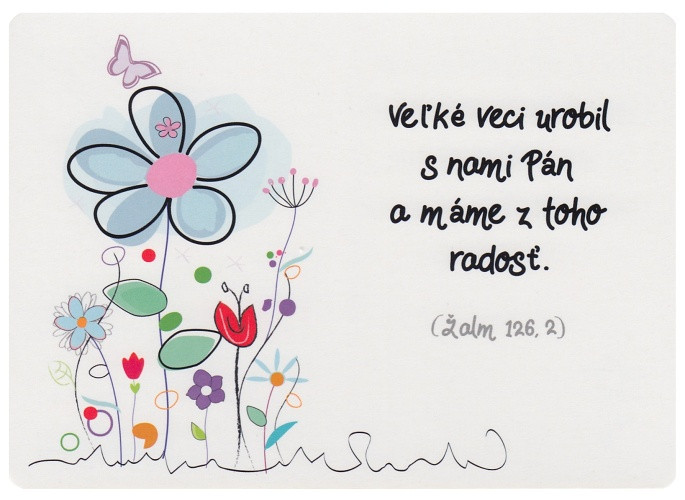 Veľké veci urobil
s nami Pán
a máme z toho
radosť.
(Žalm 126, 2)